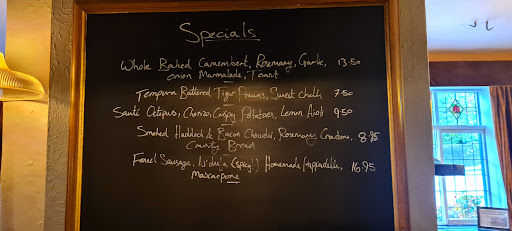 Specials
Whole Baked Camembert, Rosemary, Garlic, 13.50
onion Marmalade, Toast
Tempura Battered Tiger Prawns, Sweet chilli 7.50
Sauté Octopus, Chorizo, Crispy Potatoes, Lemon Aioli 9.50
Smoked Haddock & Bacon Chowder, Rosemary Croutons, 8.95
Crusty Bread
Fennel Sausage, N'duja (spicy!) Homemade Pappardelle, 16.95
Mascarpone